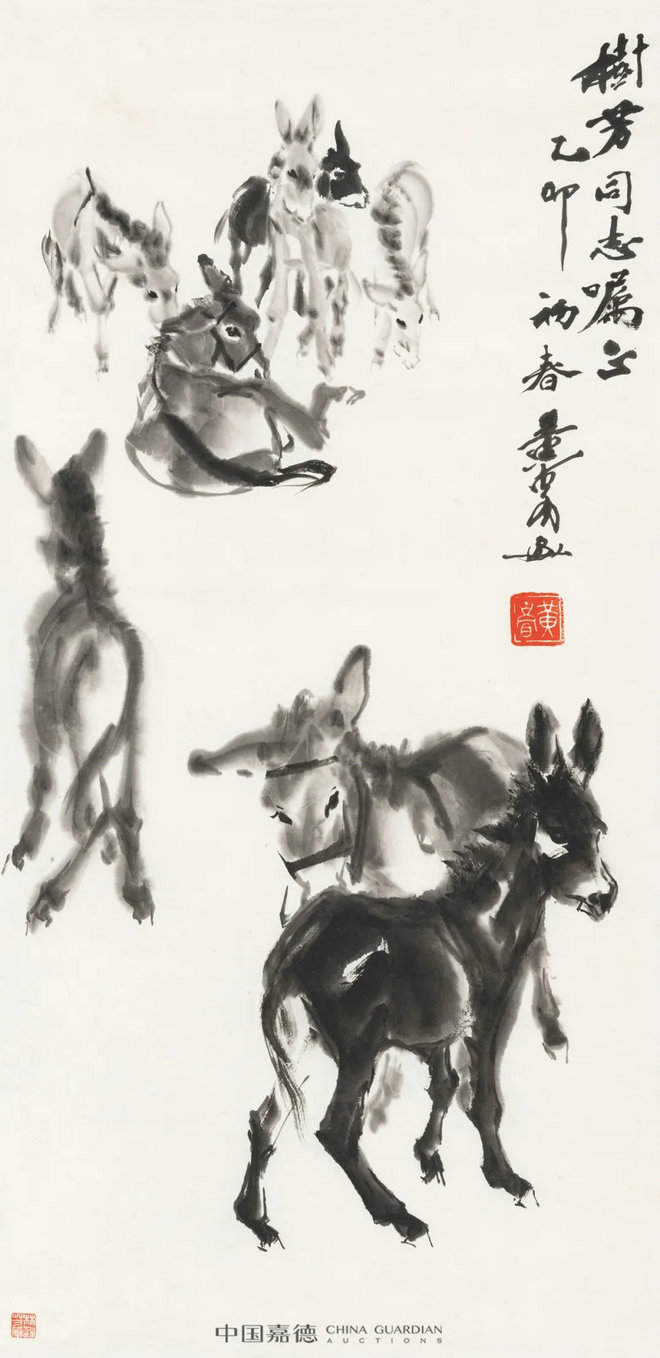 樹芳同志嘱正
乙卯初春黄胄画
黄胄
中国嘉德 CHINA GUARDIAN
AUCTIONS